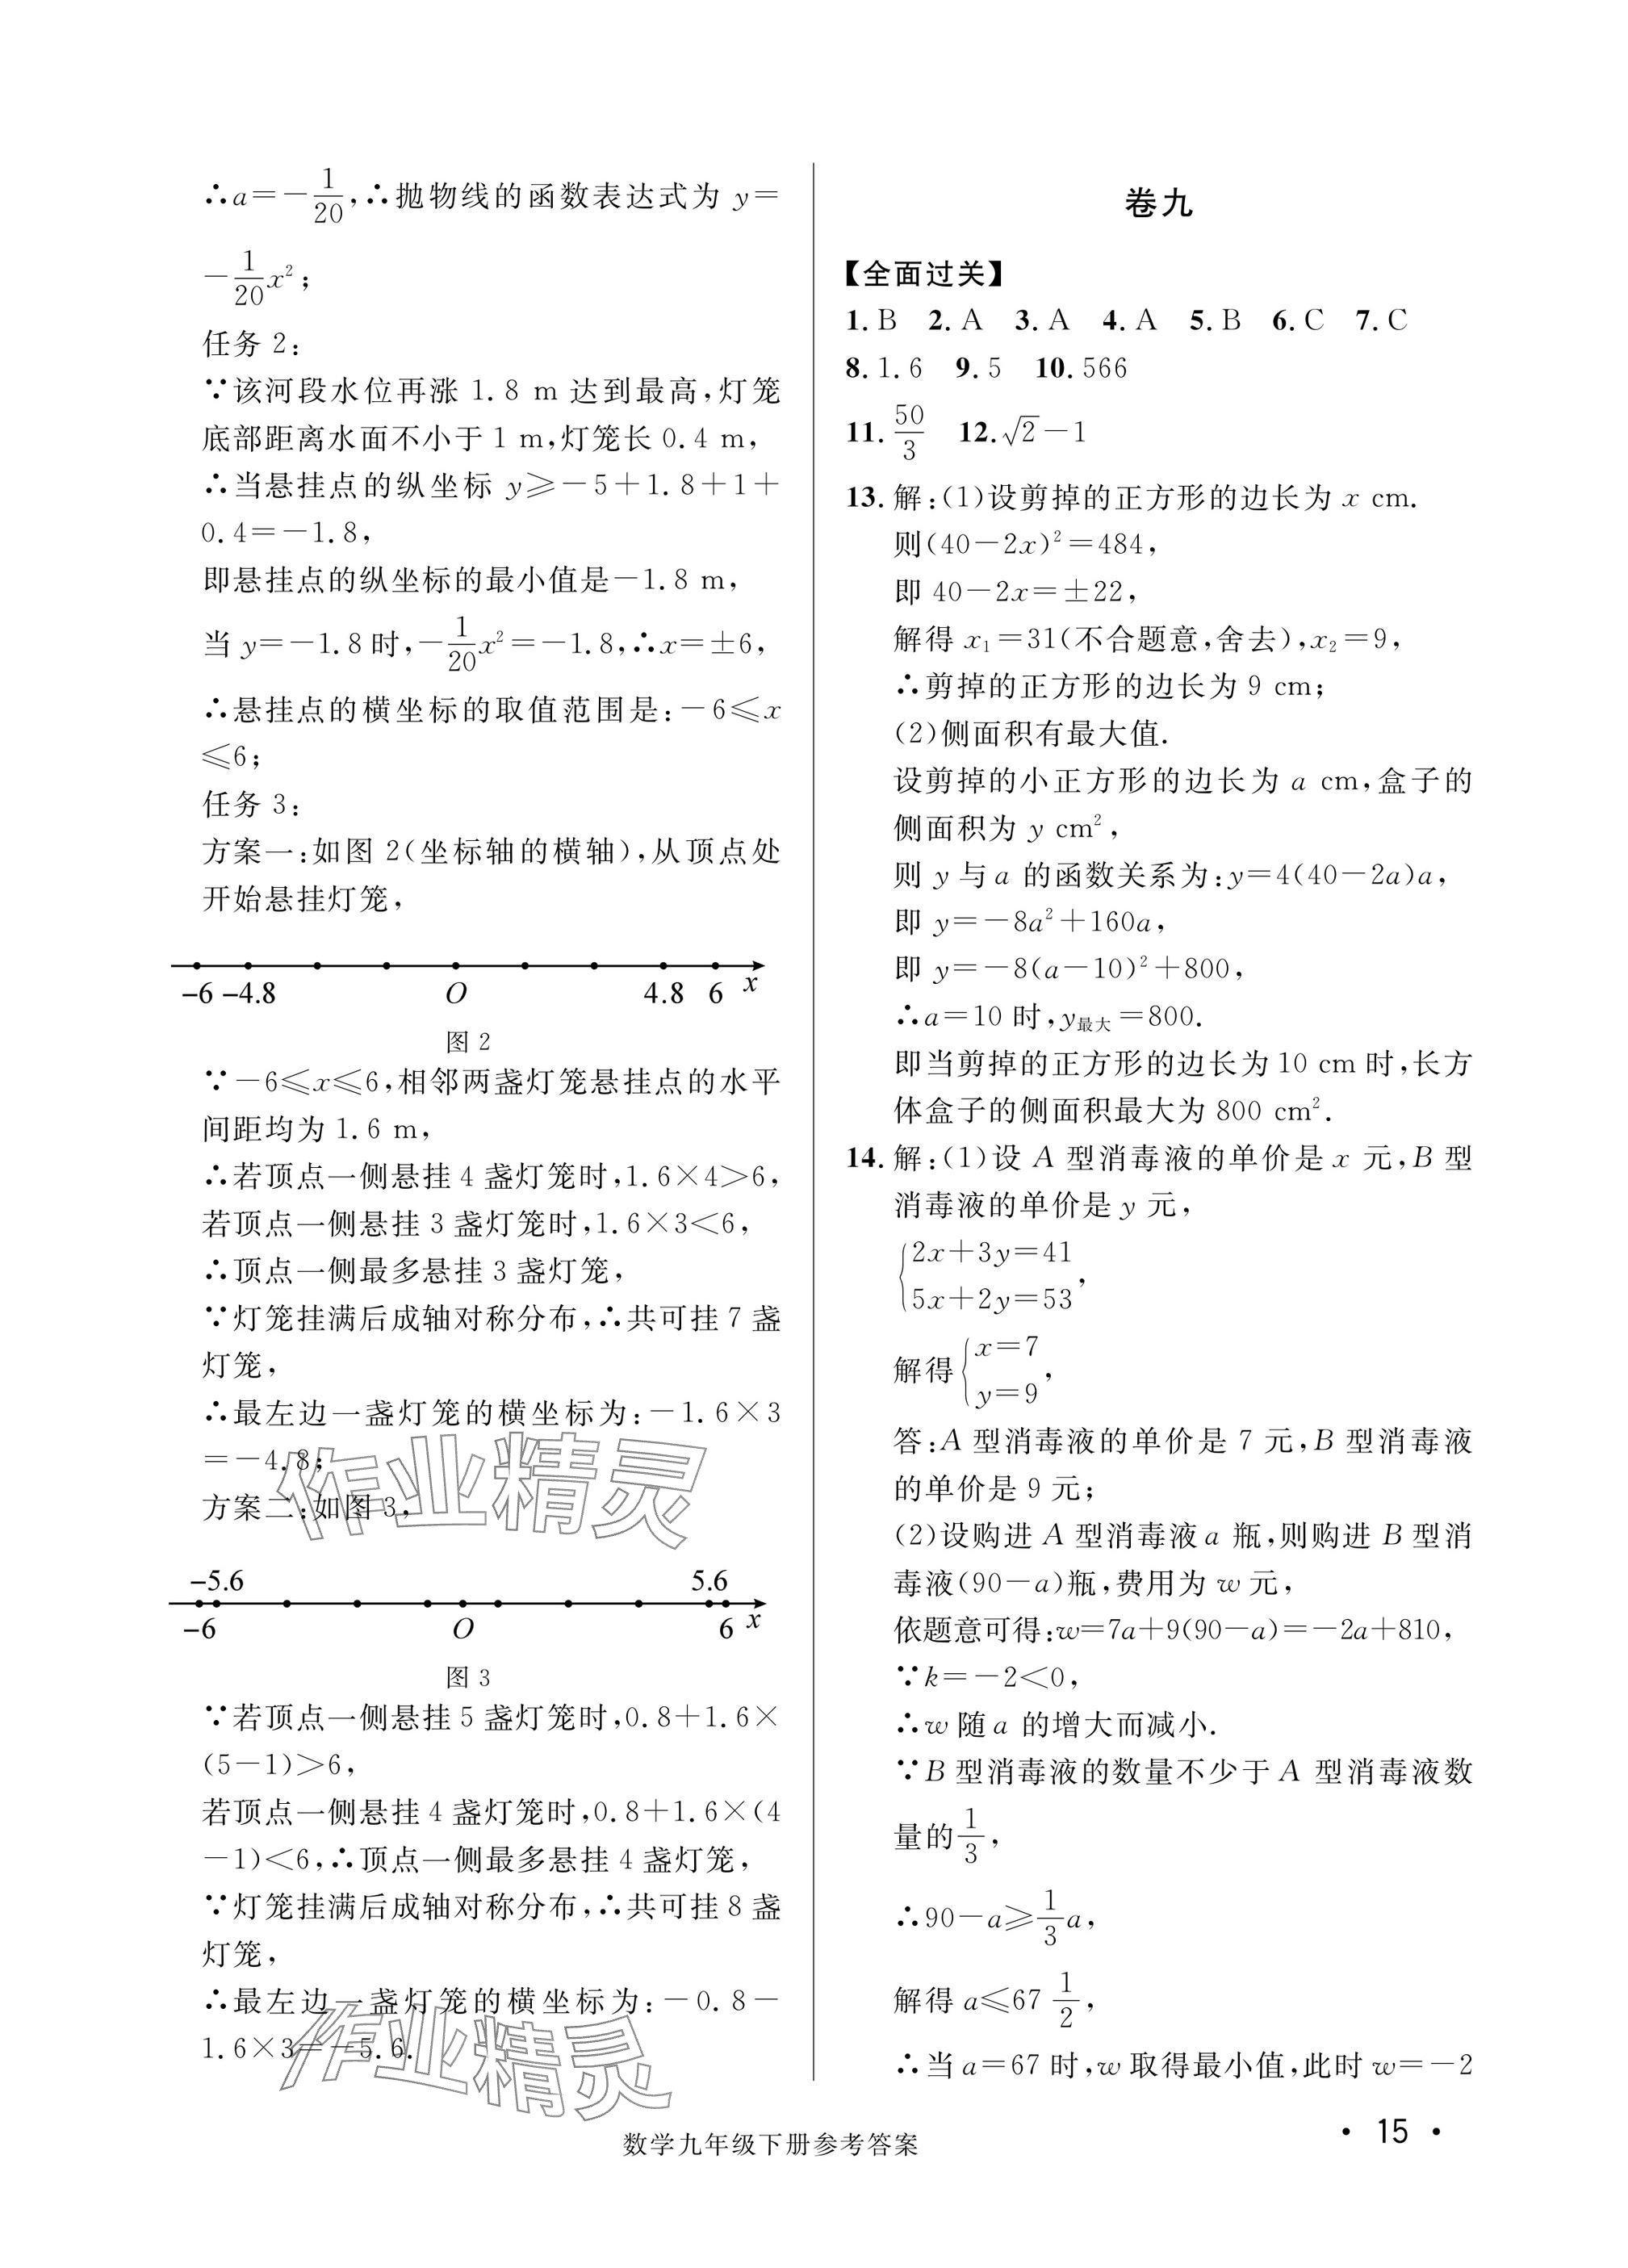 ∴a=-1/20,∴抛物线的函数表达式为 y=
-1/20x²;
任务 2:
∵该河段水位再涨 1.8 m 达到最高,灯笼
底部距离水面不小于 1 m,灯笼长 0.4 m,
∴当悬挂点的纵坐标 y≥-5+1.8+1+
0.4=-1.8,
即悬挂点的纵坐标的最小值是-1.8 m,
当 y=-1.8 时,-1/20x²=-1.8,∴x=±6,
∴悬挂点的横坐标的取值范围是:-6≤x
≤6;
任务 3:
方案一:如图 2(坐标轴的横轴),从顶点处
开始悬挂灯笼,
-6 -4.8 O 4.8 6 x
图 2
∵-6≤x≤6,相邻两盏灯笼悬挂点的水平
间距均为 1.6 m,
∴若顶点一侧悬挂 4 盏灯笼时,1.6×4>6,
若顶点一侧悬挂 3 盏灯笼时,1.6×3<6,
∴顶点一侧最多悬挂 3 盏灯笼,
∵灯笼挂满后成轴对称分布,∴共可挂 7 盏
灯笼,
∴最左边一盏灯笼的横坐标为:-1.6×3
=-4.8;
方案二:如图 3,
作业精灵
-5.6 5.6
-6 O 6 x
图 3
∵若顶点一侧悬挂 5 盏灯笼时,0.8+1.6×
(5-1)>6,
若顶点一侧悬挂 4 盏灯笼时,0.8+1.6×(4
-1)<6,∴顶点一侧最多悬挂 4 盏灯笼,
∵灯笼挂满后成轴对称分布,∴共可挂 8 盏
灯笼,
∴最左边一盏灯笼的横坐标为:-0.8-
1.6×3=-5.6.
作业精灵
卷九
【全面过关】
1.B 2.A 3.A 4.A 5.B 6.C 7.C
8.1.6 9.5 10.566
11.50/3 12.√2-1
13.解:(1)设剪掉的正方形的边长为 x cm.
则(40-2x)²=484,
即 40-2x=±22,
解得 x₁=31(不合题意,舍去),x₂=9,
∴剪掉的正方形的边长为 9 cm;
(2)侧面积有最大值.
设剪掉的小正方形的边长为 a cm,盒子的
侧面积为 y cm²,
则 y 与 a 的函数关系为:y=4(40-2a)a,
即 y=-8a²+160a,
即 y=-8(a-10)²+800,
∴a=10 时,y最大=800.
即当剪掉的正方形的边长为 10 cm 时,长方
体盒子的侧面积最大为 800 cm².
14.解:(1)设 A 型消毒液的单价是 x 元,B 型
消毒液的单价是 y 元,
{2x+3y=41
5x+2y=53,
解得{x=7
y=9,
答:A 型消毒液的单价是 7 元,B 型消毒液
的单价是 9 元;
(2)设购进 A 型消毒液 a 瓶,则购进 B 型消
毒液(90-a)瓶,费用为 w 元,
依题意可得:w=7a+9(90-a)=-2a+810,
∵k=-2<0,
∴w 随 a 的增大而减小.
∵B 型消毒液的数量不少于 A 型消毒液数
量的1/3,
∴90-a≥1/3a,
解得 a≤67 1/2,
∴当 a=67 时,w 取得最小值,此时 w=-2
数学九年级下册参考答案
· 15 ·